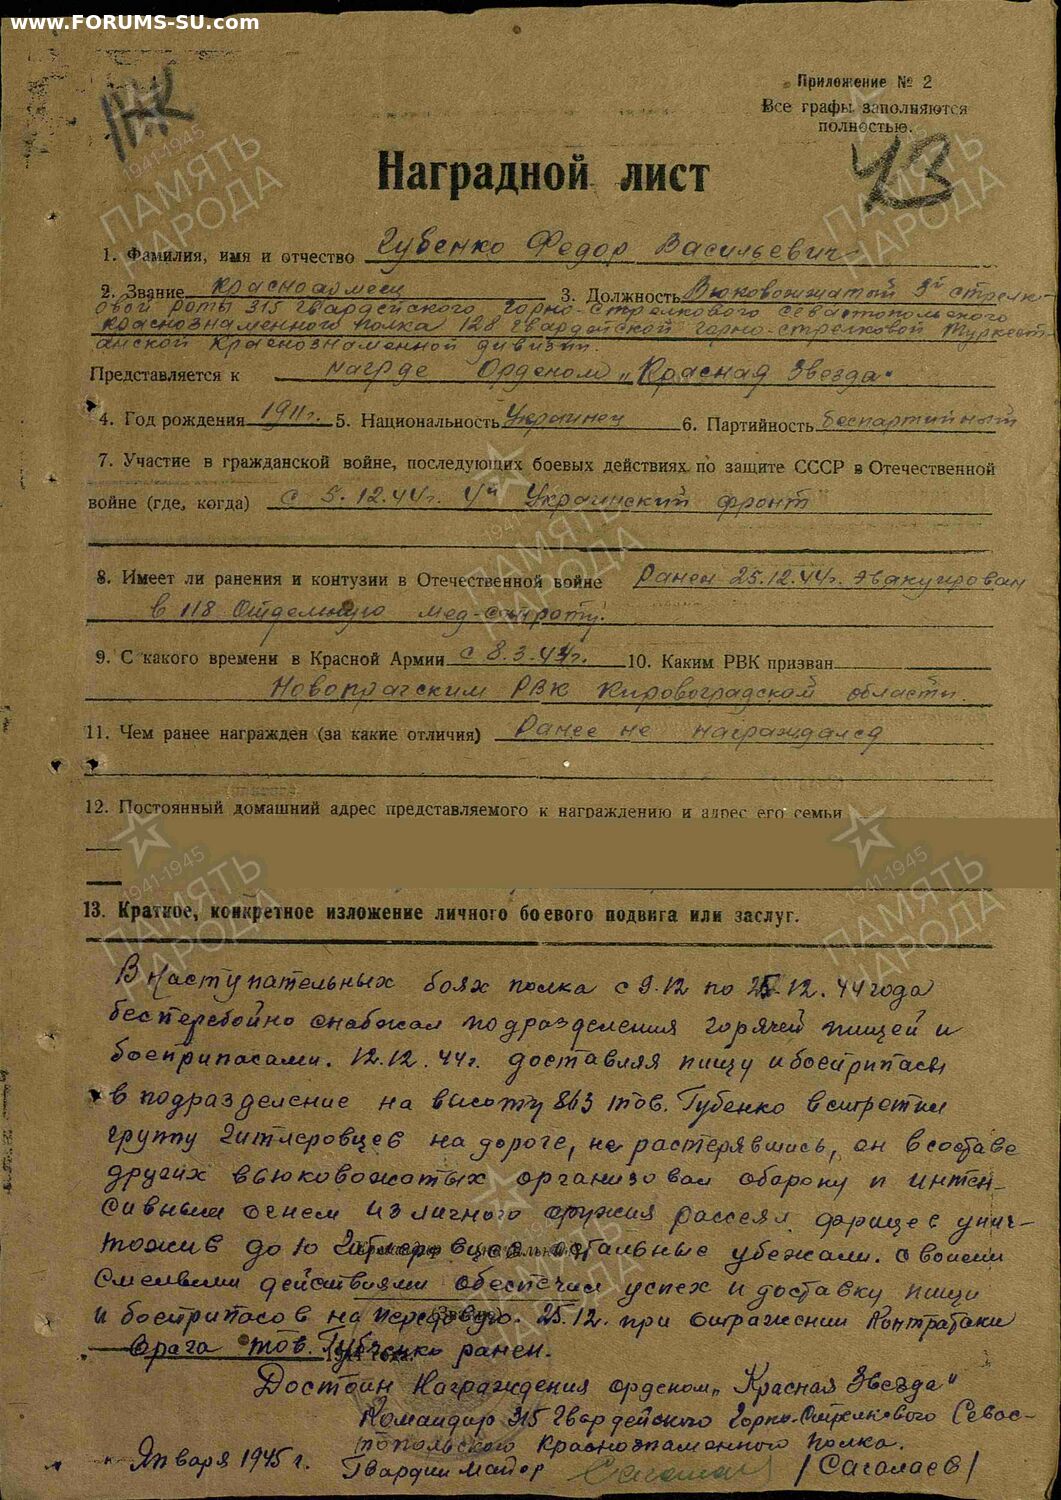 www.FORUMS-SU.com
Приложение № 2
Все графы заполняются
полностью.
43
Наградной лист
1. Фамилия, имя и отчество Губенко Федор Васильевич
2. Звание красноармеец 3. Должность Вьюковожатый 3й стрелк-
овой роты 315 гвардейского горно-стрелкового севастопольского
краснознаменного полка 128 гвардейской горно-стрелковой Туркест-
анской Краснознаменной дивизии.
Представляется к награде Орденом „Красная Звезда"
4. Год рождения 1911 г. 5. Национальность Украинец 6. Партийность беспартийный
7. Участие в гражданской войне, последующих боевых действиях по защите СССР в Отечественной
войне (где, когда) с 5.12.44 г. 4й Украинский фронт
8. Имеет ли ранения и контузии в Отечественной войне Ранен 25.12.44 г. эвакуирован
в 118 Отдельную мед-санроту.
9. С какого времени в Красной Армии с 8.3.44 г. 10. Каким РВК призван
Новопрагским РВК Кировоградской области.
11. Чем ранее награжден (за какие отличия) Ранее не награждался
12. Постоянный домашний адрес представляемого к награждению и адрес его семьи
13. Краткое, конкретное изложение личного боевого подвига или заслуг.
В наступательных боях полка с 9.12 по 25.12.44 года
бесперебойно снабжал подразделения горячей пищей и
боеприпасами. 12.12.44 г. доставляя пищу и боеприпасы
в подразделение на высоту 863 тов. Губенко встретил
группу гитлеровцев на дороге, не растерявшись, он в составе
других вьюковожатых организовал оборону и интен-
сивным огнем из личного оружия рассеял фрицев унич-
тожив до 10 гитлеровцев остальные убежали. Своими
смелыми действиями обеспечил успех и доставку пищи
и боеприпасов на передовую. 25.12. при отражении контратаки
врага тов. Губенко ранен.
Достоин награждения орденом „Красная Звезда"
Командир 315 Гвардейского Горно-Стрелкового Севас-
топольского Краснознаменного полка.
Января 1945 г. Гвардии майор /Сагалаев/
ПАМЯТЬ
НАРОДА
1941-1945